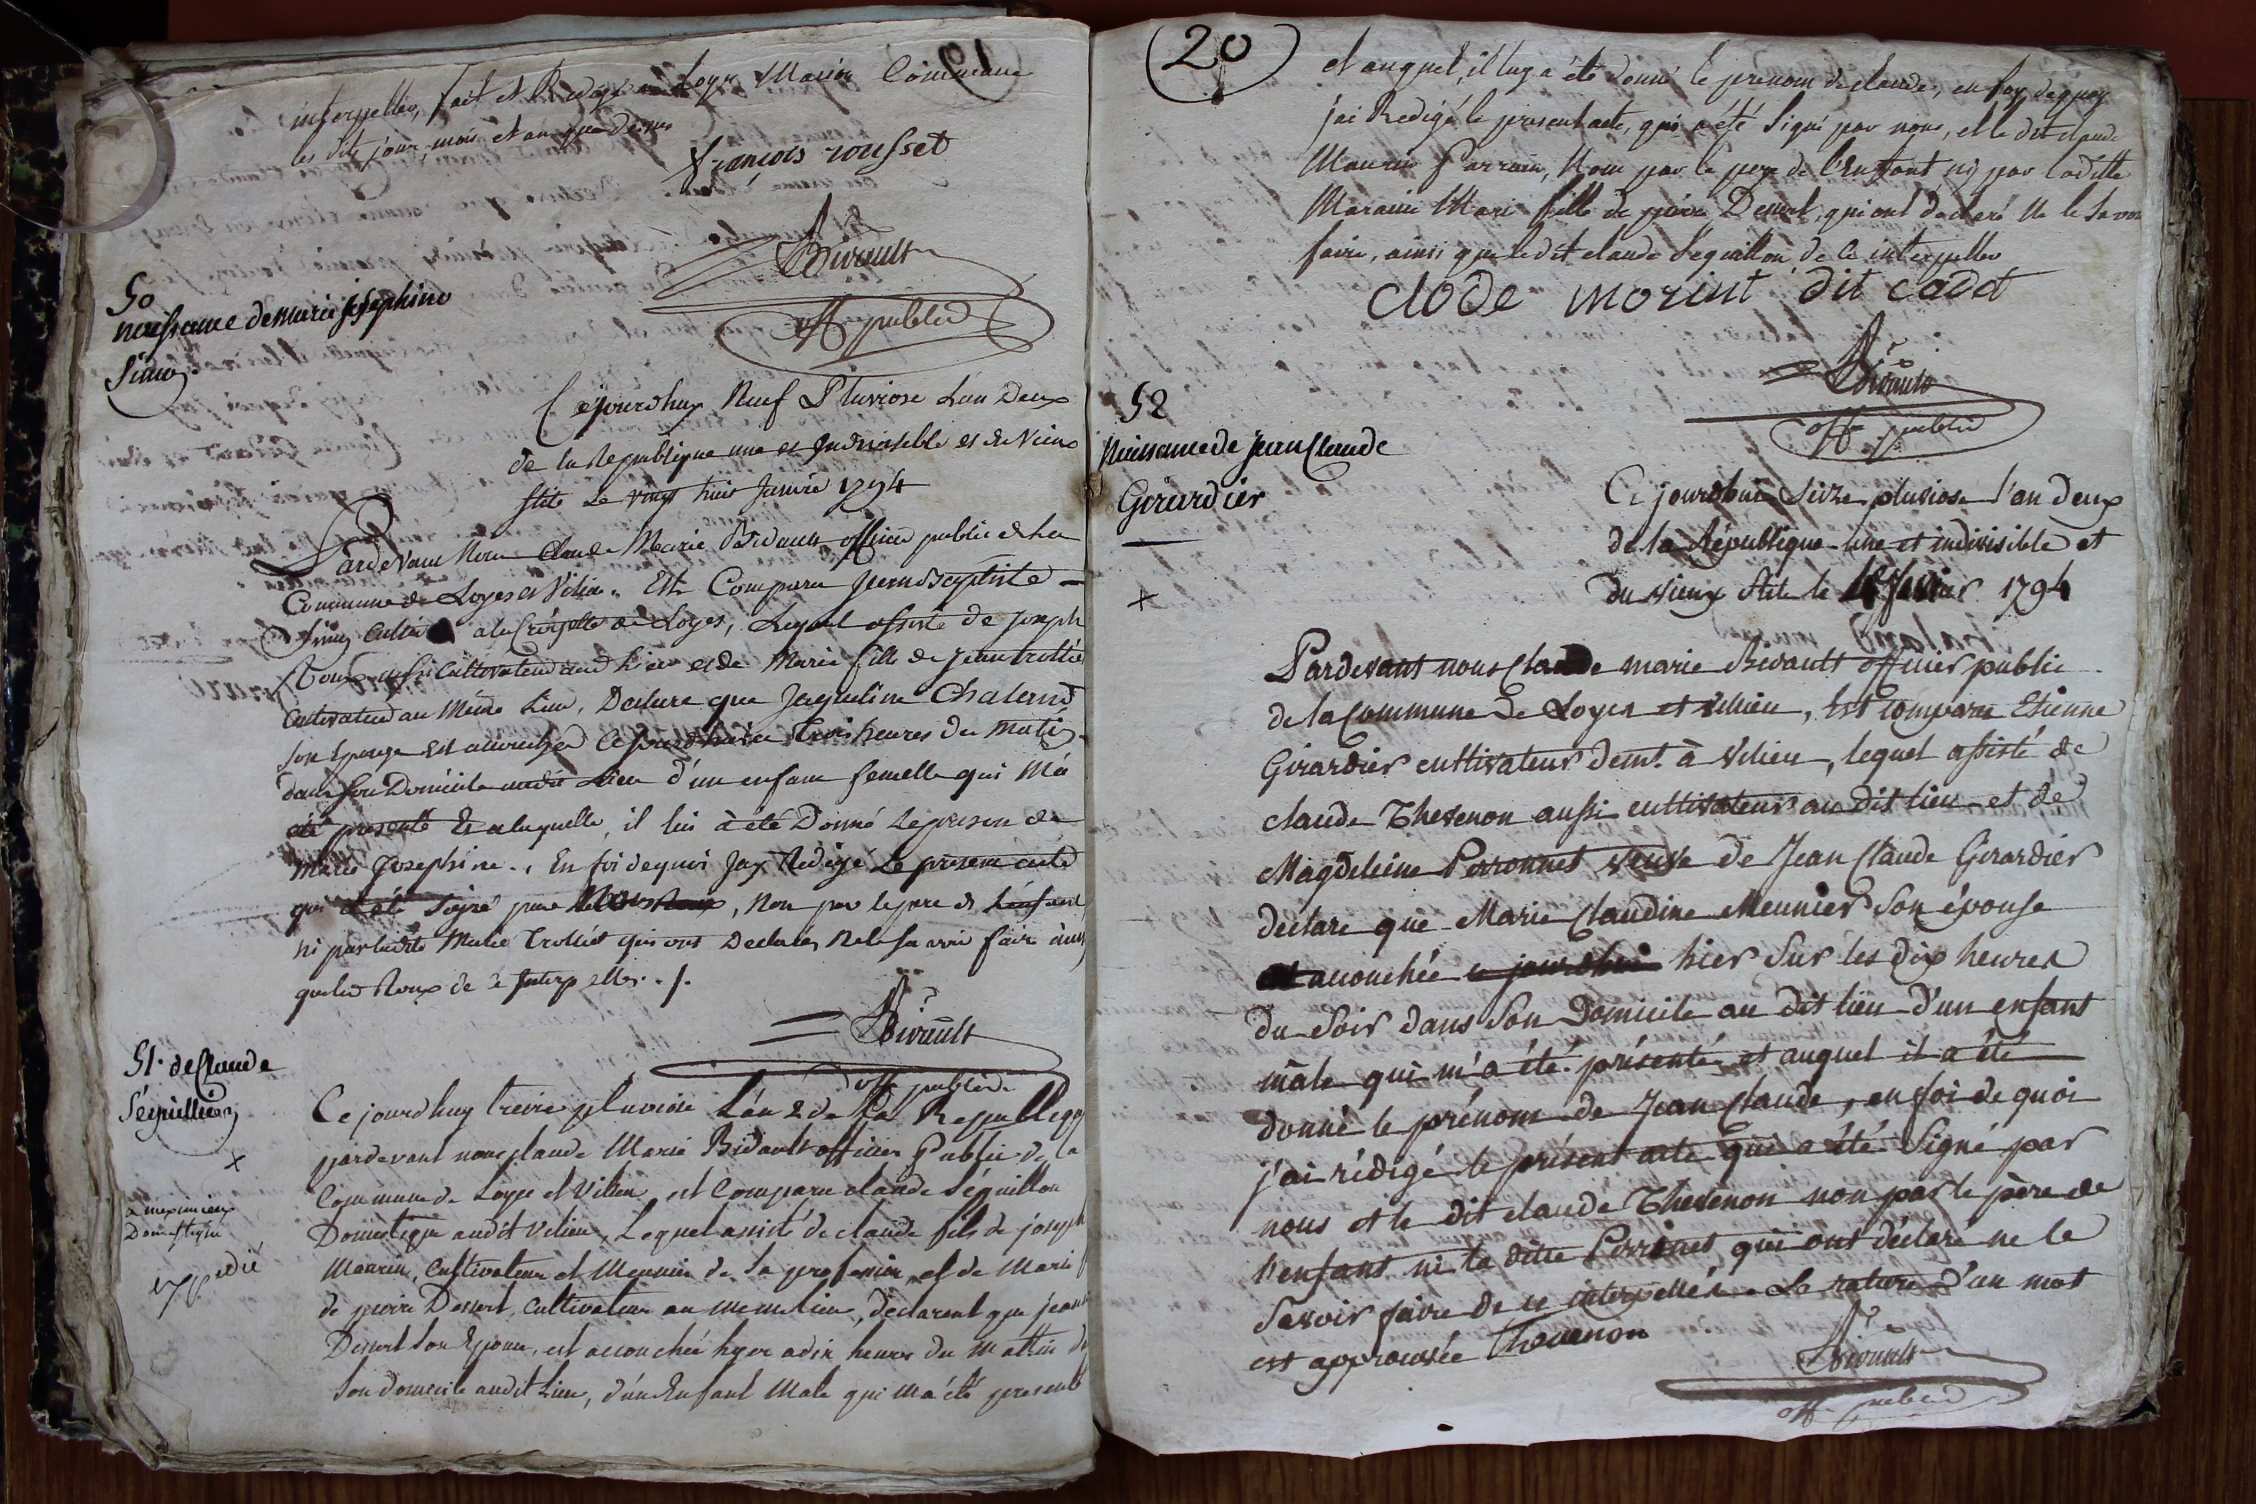 interpellés, fait et Redigé en Loyes Maison Commune
les dits jour, mois et an que dessus
françois rousset
Bivault
off publid
50
naissance de marie josephine
Simo
Cejourdhuy Neuf Pluviose Lan Deux
de la Republique une et Indivisible et du Vieux
stile Le vingt huit Janvie 1794
Pardevant Nous Claude Marie Bivault officie public de La
Commune de Loyes et Vilieu. Est Comparu Jean Baptiste
cultiv a la Loyes, Lequel assisté de Joseph
Roux aussi Cultivateur audit Lieu et de Marie fille de Jean trollie
Cultivateur au Même Lieu, Declare que Jaqueline Chaland
son Epouse est accouchée Cejourdhui a trois heures du Matin
dans son Domicile audit Lieu d'un enfant femelle qui M'a
été presenté Et a laquelle, il lui à été Donné Le prenom de
Marie Josephine., En foi dequoi Jay Redigé Le present acte
qui a été Signé par Nous, Non par le pere de L'enfant
ni par ladite Marie Trolliet qui ont Declarés Ne le savoir faire ainsy
que led Roux de ce Interpellés./.
Bivault
off publid
51. de Claude
Séguillion
x
a meximieux
Domestique
Ce jourdhuy treize pluviose L'an 2 de La Republiq
pardevant nous claude Marie Bidault officier Public de la
Commune de Loyes et Vilieu est Comparu claude Séguillon
Domestique audit Vilieu, Lequel assisté de claude fils de joseph
Maurin, Cultivateur et Meunier de Sa profession, et de Marie f
de pierre Dessert, Cultivateur au meme lieu, declarent que jeann
Dessert Son Epouse, est accouchée hyer a dix heures du mattin d
Son domicile audit Lieu, d'un Enfant Male qui m'a été presenté
20
et auquel, il luy a été donné le prenom de claude, en foy de quoy
jai Redigé le present acte, qui a été Signé par nous, et le dit claude
Maurin Parrain, Non par le pere de l'Enfant ny par ladite
Maraine Marie fille de pierre Dessert, qui ont declaré Ne le Savoir
faire, ainsi que le dit claude Seguillon de ce interpellés
clode morint dit cadet
Bivault
off publid
52
Naissance de Jean Claude
Girardier
x
Ce jourdhui Seize pluviose l'an deux
de la République une et indivisible et
du vieux Stile le 1794
Pardevant nous Claude marie Bivault officier public
de la Commune de Loyes et Vilieu, Est comparu Etienne
Girardier cultivateur demt. à Vilieu, lequel assisté de
claude Thevenon aussi cultivateur au dit lieu et de
Magdeleine Perronnet veuve de Jean Claude Girardier
déclare que Marie Claudine Meunier Son épouse
est accouchée ce jourdhui hier Sur les dix heures
du Soir dans Son Domicile au dit lieu d'un enfant
mâle qui m'a été présenté et auquel il a été
donné le prénom de Jean Claude, en foi de quoi
j'ai rédigé le présent acte qui a été Signé par
nous et le dit claude Thevenon non par le père de
l'enfant ni la ditte Perronet qui ont déclaré ne le
Savoir faire de ce interpellés. La rature d'un mot
est approuvée Thevenon
Bivault
off publid